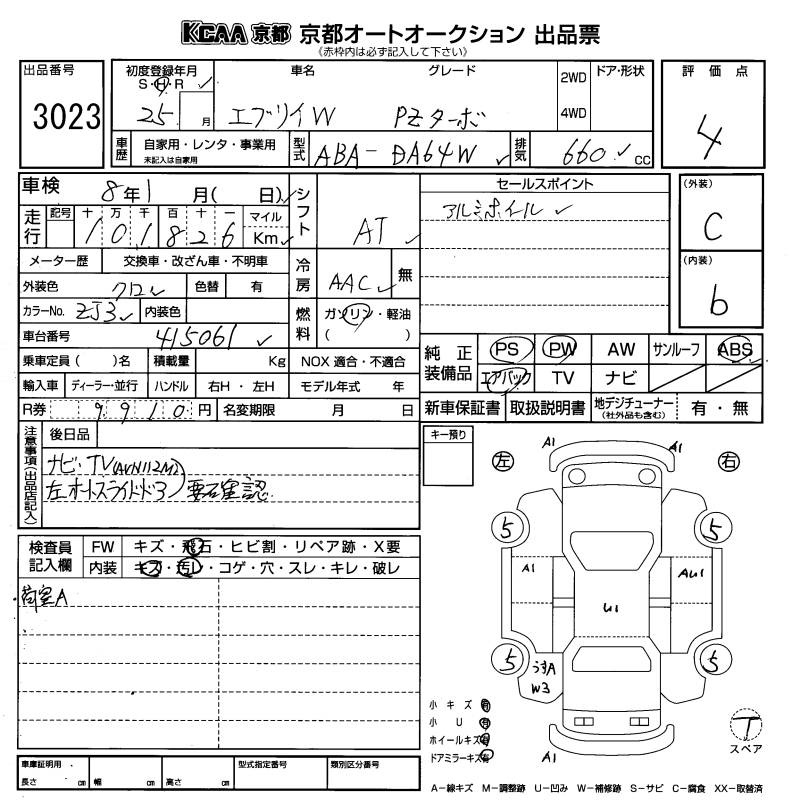 KCAA 京都 京都オートオークション 出品票
(赤枠内は必ず記入して下さい)
出品番号
3023
初度登録年月
S・H・R ✓
25 月
車名
エブリイW
グレード
PZターボ
2WD
4WD
ドア・形状
車歴
自家用・レンタ・事業用
未記入は自家用
型式
ABA-DA64W ✓
排気
660 ✓ cc
評価点
4
車検
8年1月( 日)✓
走行
記号 十 万 千 百 十 一 マイル
1 0 1 8 2 6 Km ✓
メーター歴 交換車・改ざん車・不明車
外装色 クロ ✓ 色替 有
カラーNo. ZJ3 ✓ 内装色
車台番号 415061 ✓
乗車定員( )名 積載量 Kg NOX 適合・不適合
輸入車 ディーラー・並行 ハンドル 右H・左H モデル年式 年
R券 9910円 名変期限 月 日
シフト
AT ✓
冷房
AAC ✓ 無
燃料
ガソリン・軽油
( )
セールスポイント
アルミホイル ✓
(外装)
C
(内装)
b
純正装備品
PS PW AW サンルーフ ABS
エアバック TV ナビ
新車保証書 取扱説明書 地デジチューナー 有・無
(社外品も含む)
注意事項(出品店記入)
後日品
ナビ・TV(AVN112M)
左オートスライドドア 要確認
検査員記入欄
FW キズ・飛石・ヒビ割・リペア跡・X要
内装 キズ・汚レ・コゲ・穴・スレ・キレ・破レ
荷室A
キー預り
左
右
A1
A1
5
5
A1
AU1
U1
5
5
うすA
W3
A1
小キズ 有
小U 有
ホイールキズ 有
ドアミラーキズ 有
T
スペア
車庫証明用 長さ cm 幅 cm 高さ cm
型式指定番号
類別区分番号
A−線キズ M−調整跡 U−凹み W−補修跡 S−サビ C−腐食 XX−取替済